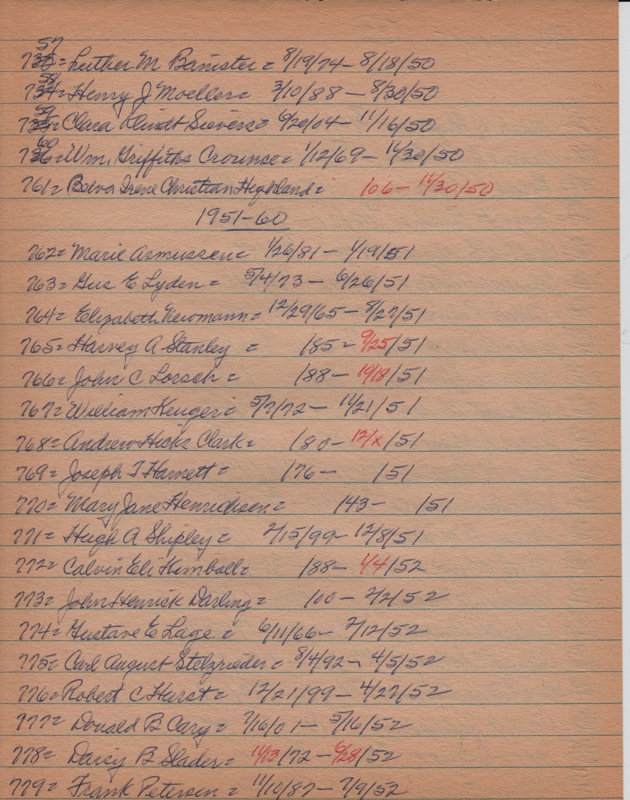 757= Luther M Banister = 8/19/74 - 8/18/50
758= Henry J Moeller= 3/10/88 - 8/30/50
759= Clara Klindt Sievers= 9/20/04 - 11/16/50
760= Wm. Griffiths Crounse= 1/12/69 - 11/30/50
761= Belva Irene Christian Highland= /06 - 11/30/50
1951-60
762= Marie Asmussen= 1/26/81 - 1/19/51
763= Gus E Lyden = 5/4/73 - 6/26/51
764= Elizabeth Newmann= 12/29/65 - 8/27/51
765= Harvey A Stanley = /85 - 9/25/51
766= John C Lorsch = /88 - /51
767= William Kruger= 5/7/72 - 11/21/51
768= Andrew Hicks Clark= /80 - 12/x/51
769= Joseph T Harnett= /76 - /51
770= Mary Jane Henrichsen= /43 - /51
771= Hugh A Shipley= 2/15/99 - 12/8/51
772= Calvin Eli Kimball= /88 - 1/4/52
773= John Henrick Darling= /00 - 2/2/52
774= Gustave E Lage = 6/11/66 - 2/12/52
775= Carl August Stelzrieder= 8/4/92 - 4/5/52
776= Robert C Hurst= 12/21/99 - 4/27/52
777= Donald B Cary= 7/16/01 - 5/16/52
778= Darcy B Slader= 11/13/72 - 6/28/52
779= Frank Petersen= 11/10/87 - 7/9/52